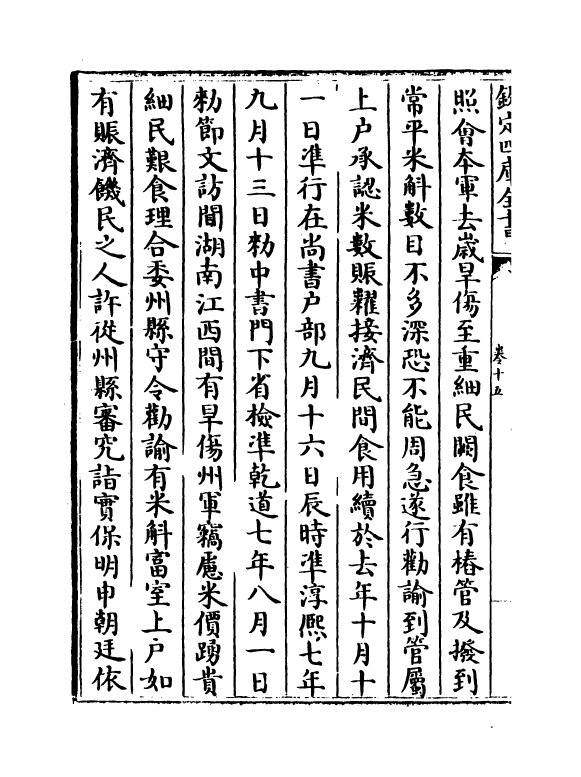 欽定四庫全書
卷十五
照會本軍去歲旱傷至重細民闕食雖有樁管及撥到
常平米斛數目不多深恐不能周急遂行勸諭到管屬
上户承認米數賑糶接濟民間食用續於去年十月十
一日準行在尚書户部九月十六日辰時準淳熙七年
九月十三日勅中書門下省檢準乾道七年八月一日
勅節文訪聞湖南江西間有旱傷州軍竊慮米價踴貴
細民艱食理合委州縣守令勸諭有米斛富室上户如
有賑濟饑民之人許從州縣審究詣實保明申朝廷依